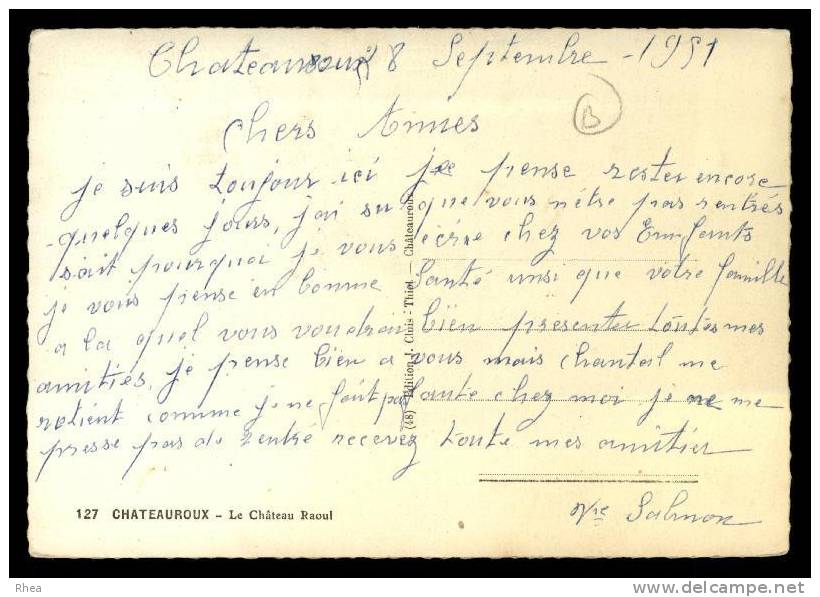 Chateauroux 8 Septembre - 1951
B
Chers Amies
je suis toujour ici je pense rester encore
quelques jours, j'ai su que vous n'étre pas rentrés
sait pourquoi je vous écrie chez vos Enfants
je vous pense en bonne Santé unsi que votre famille
a la quel vous voudrai bien présenter toutes mes
amitiés, je pense bien a vous mais Chantal me
retient comme je ne fait pas faute chez moi je ne me
presse pas de rentré recevez toute mes amitier
Vve Salmon
(48) Edition J. Cluis-Thiot. — Châteauroux
127 CHATEAUROUX - Le Château Raoul
Rhea
www.delcampe.net